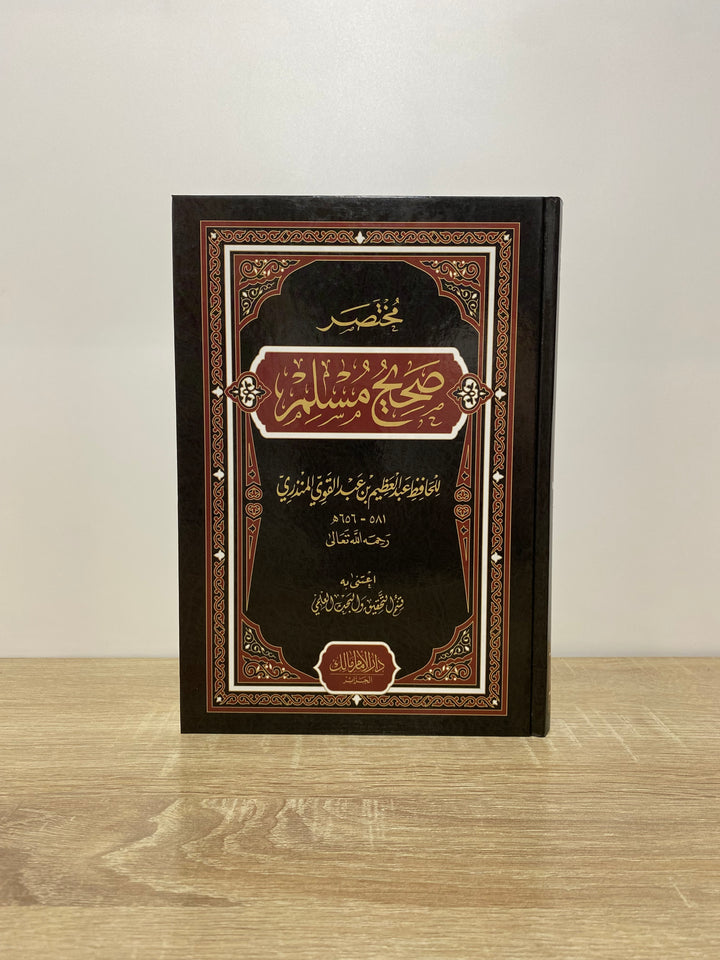 مُخْتَصَر
صَحِيحُ مُسْلِمْ
لِلْحَافِظِ عَبْدِ الْعَظِيمِ بْنِ عَبْدِ الْقَوِيِّ الْمُنْذِرِيِّ
٥٨١ - ٦٥٦هـ
رَحِمَهُ اللَّهُ تَعَالَى
اعْتَنَى بِهِ
قِسْمُ التَّحْقِيقِ وَالْبَحْثِ الْعِلْمِيِّ
دَارُ الْإِمَامِ مَالِك
الجزائر